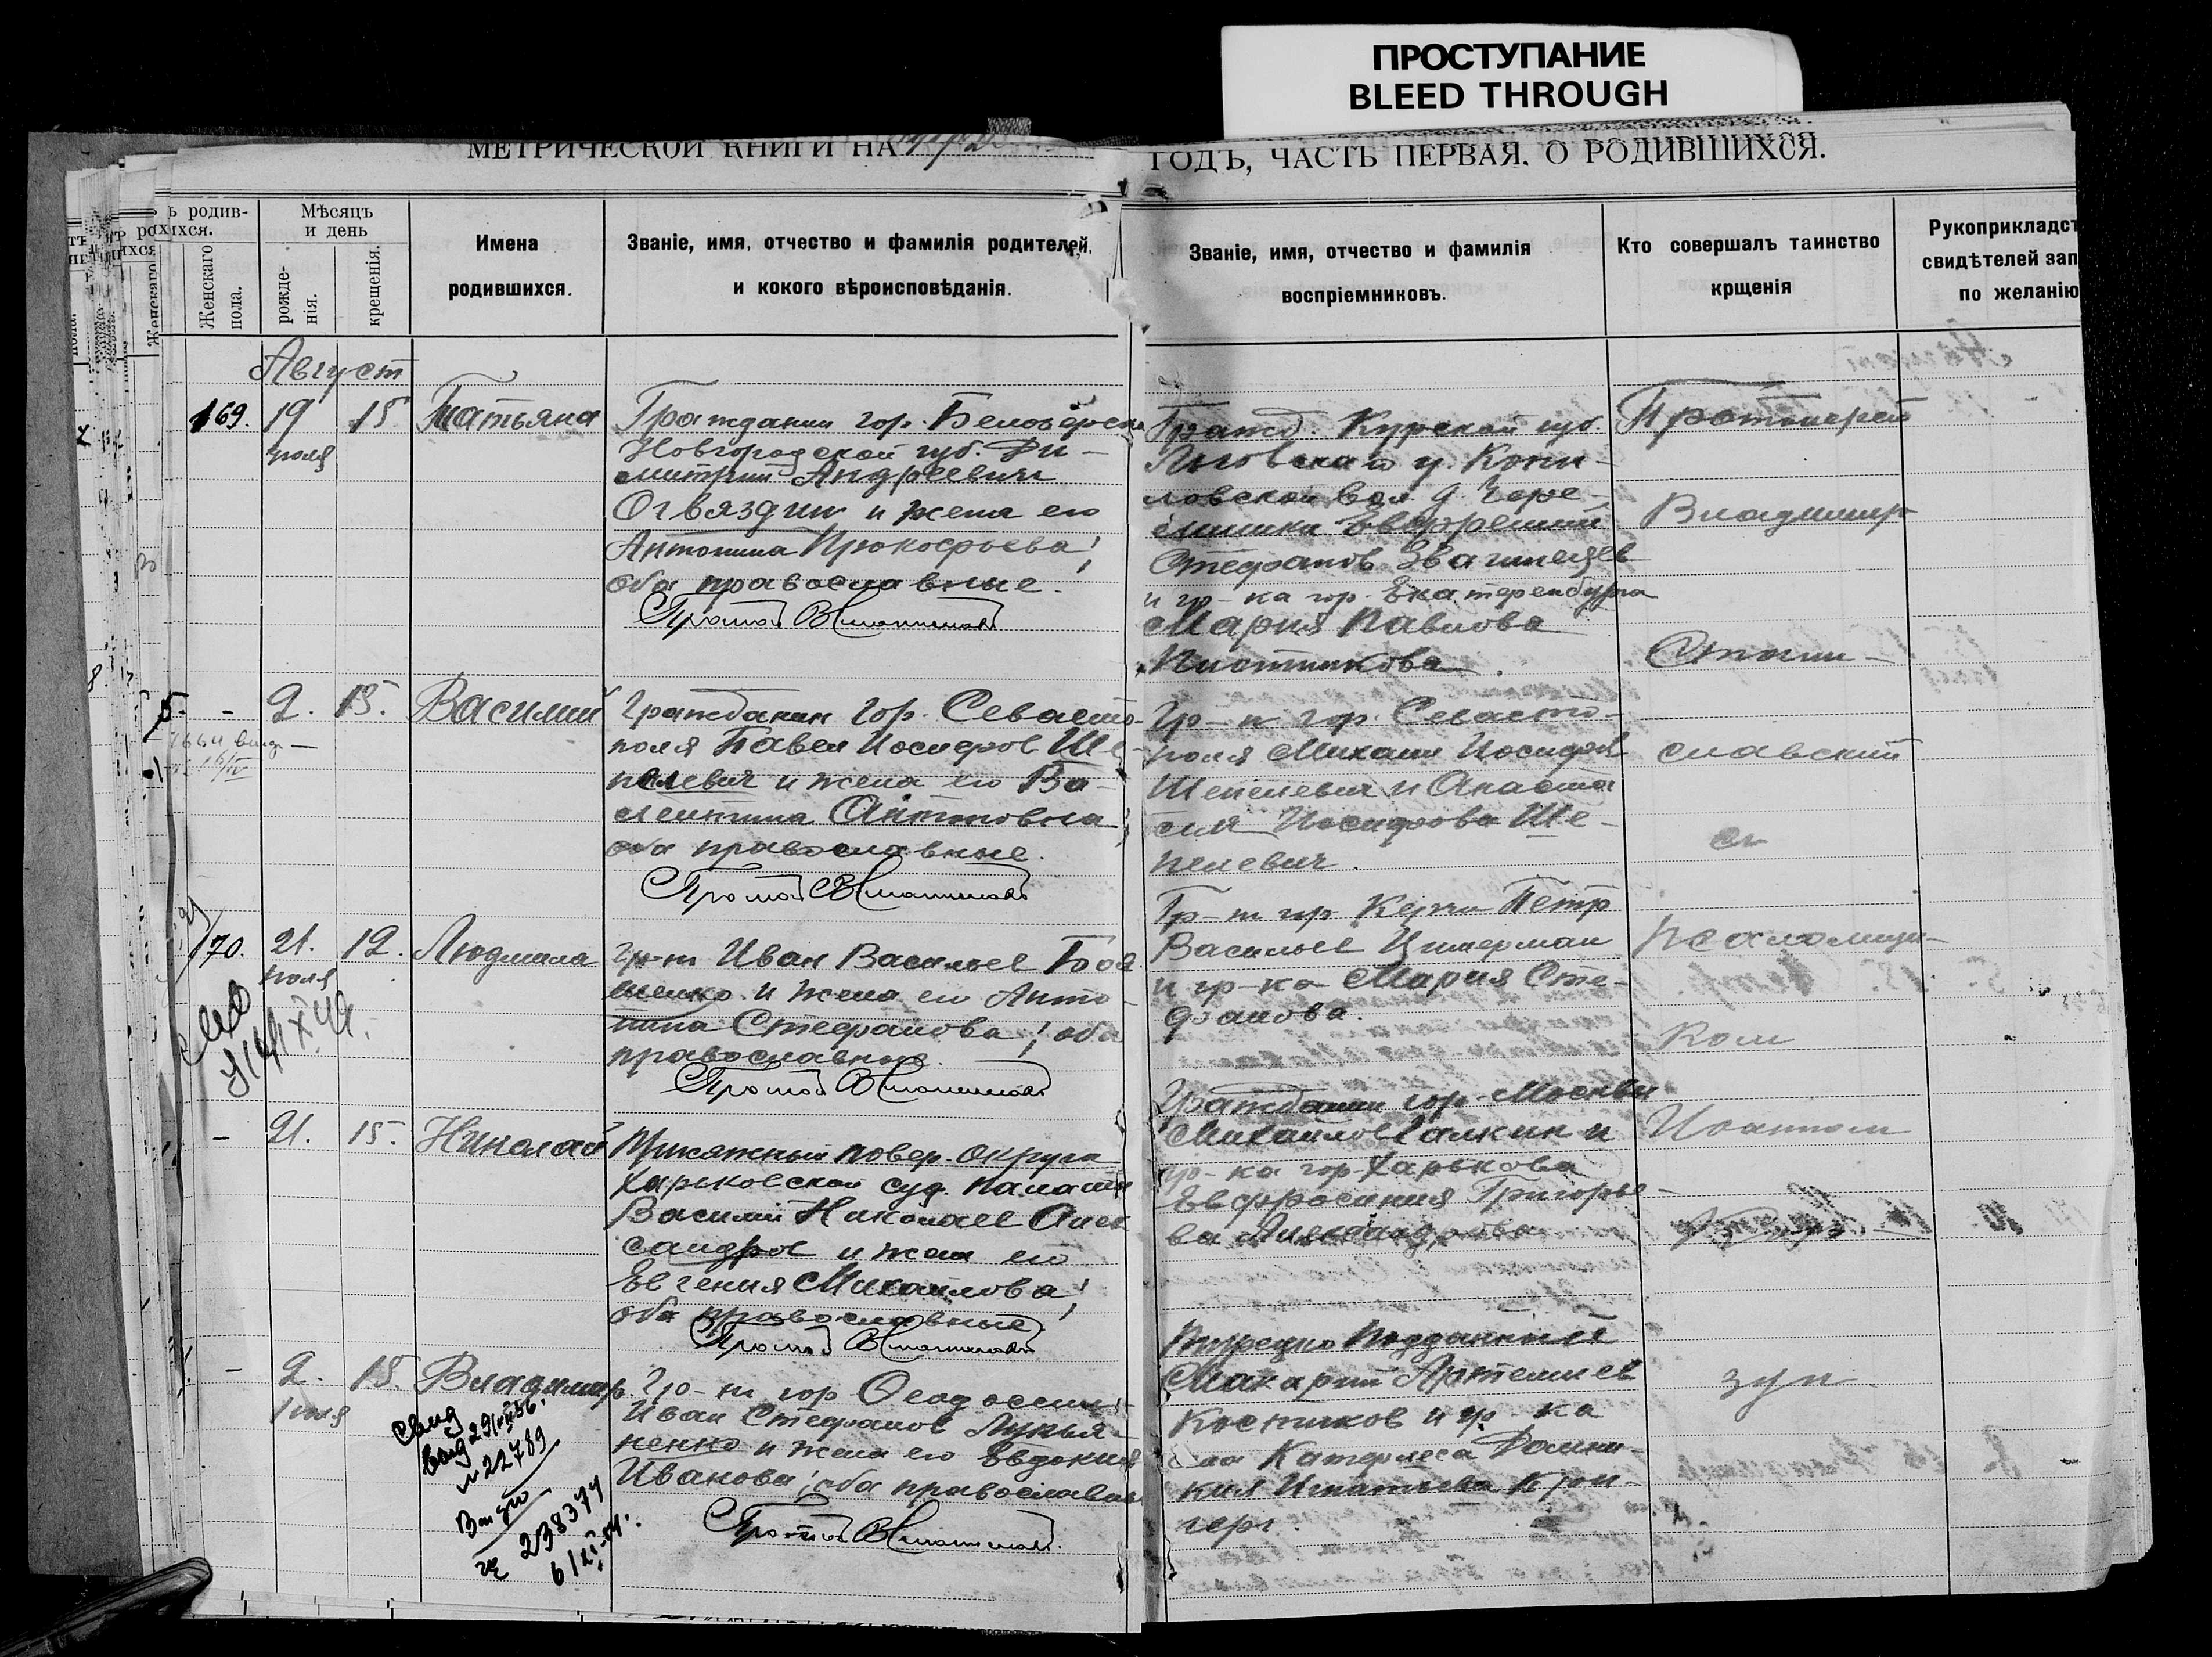 ПРОСТУПАНИЕ
BLEED THROUGH
МЕТРИЧЕСКОЙ КНИГИ НА
ГОДЪ, ЧАСТЬ ПЕРВАЯ, О РОДИВШИХСЯ.
ъ родив-
хихся.
Женскаго
пола.
Мѣсяцъ
и день
рожде-
нія.
крещенія.
Имена
родившихся.
Званіе, имя, отчество и фамилія родителей,
и кокого вѣроисповѣданія.
Званіе, имя, отчество и фамилія
воспріемниковъ.
Кто совершалъ таинство
крщенія
Рукоприкладст
свидѣтелей зап
по желанію
Август
169. 19 15. Татьяна
июля
Гражданин гор. Белозерска
Новгородской губ. Ди-
митрий Андреевич
Огвяздин и жена его
Антонина Прокофьева;
оба православные.
Гражд. Курской губ.
Льговскаго у. Кони-
ловской вол. д.
Стефанов
и гр-ка гор. Екатеринбурга
Мария Павлова
Плотникова.
Протоиерей
Владимир
Стани-
славский
с
псаломщи-
ком
Иоанном
- 2. 15. Василий
Гражданин гор. Севасто-
поля Павел Иосифов Ше-
пелевич и жена его Ва-
лентина Антоновна;
оба православные.
Гр-н гор. Севасто-
поля Михаил Иосифов
Шепелевич и Анаста-
сия Иосифова Ше-
пелевич.
170. 21. 12. Людмила
июля
гр-н Иван Васильев
и жена его Анто-
нина Стефанова; оба
православные.
Гр-н гор. Керчи Петр
Васильев Цимерман
и гр-ка Мария Сте-
фанова.
- 21. 15. Николай
Присяжный повер. округа
Харьковской суд. палаты
Василий Николаев Алек
сандров и жена его
Евгения Михайлова;
оба православные.
Гражданин гор. Москвы
Михаил Галкин и
гр-ка гор. Харькова
Евфросиния Григорье-
ва Александрова
- 2. 15. Владимир.
июля
Гр-н гор. Феодосии
Иван Стефанов Лукья-
ненко и жена его Евдокия
Иванова; оба православные
Турецко подданный
Макарий Артемиев
Костиков и гр-ка
Катерлеса Домни-
кия Игнатьева Кри-
гер.
свид
выд 29/VII 56.
№ 22789
238374
6/XI-54.